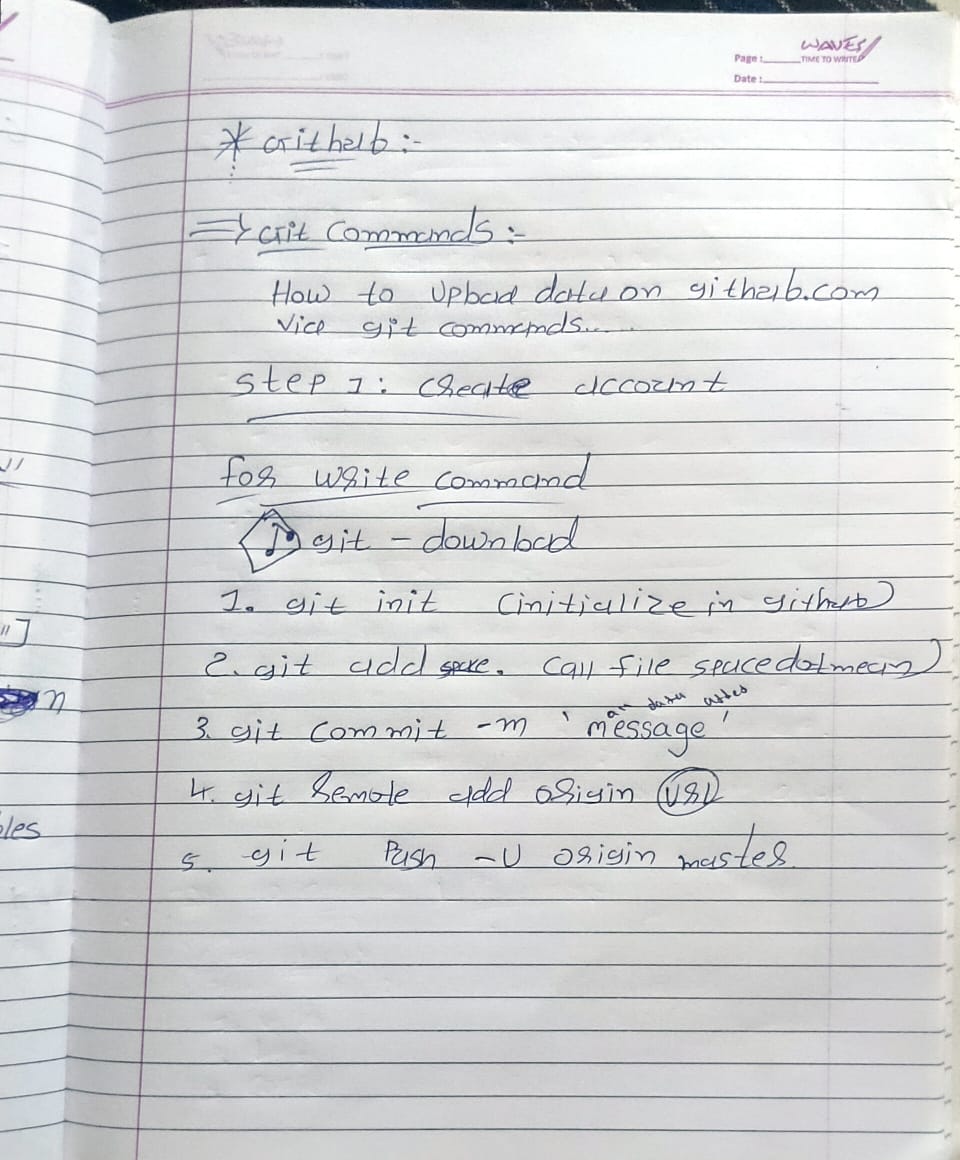 WAVES
Page :
TIME TO WRITE
Date :
* Github :-
=> Git Commands :-
How to Upload data on github.com
vice git commands.....
Step 1 : Create account
for write command
git - download
1. git init (initialize in github)
2. git add space . (all file space dot mean)
all data after
3. git commit -m ' message '
4. git remote add origin URL
5. git Push -U origin master.
"
"]
n
les